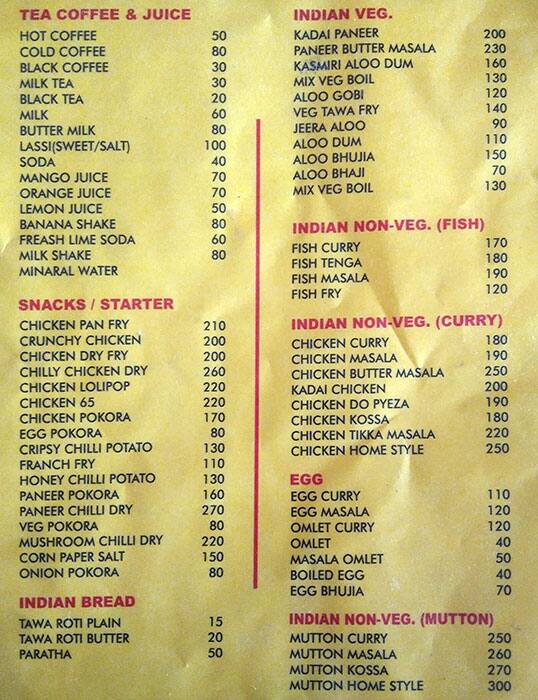 TEA COFFEE & JUICE
HOT COFFEE 50
COLD COFFEE 80
BLACK COFFEE 30
MILK TEA 30
BLACK TEA 20
MILK 60
BUTTER MILK 80
LASSI(SWEET/SALT) 100
SODA 40
MANGO JUICE 70
ORANGE JUICE 70
LEMON JUICE 50
BANANA SHAKE 80
FREASH LIME SODA 60
MILK SHAKE 80
MINARAL WATER
SNACKS / STARTER
CHICKEN PAN FRY 210
CRUNCHY CHICKEN 200
CHICKEN DRY FRY 200
CHILLY CHICKEN DRY 260
CHICKEN LOLIPOP 220
CHICKEN 65 220
CHICKEN POKORA 170
EGG POKORA 80
CRIPSY CHILLI POTATO 130
FRANCH FRY 110
HONEY CHILLI POTATO 130
PANEER POKORA 160
PANEER CHILLI DRY 270
VEG POKORA 80
MUSHROOM CHILLI DRY 220
CORN PAPER SALT 150
ONION POKORA 80
INDIAN BREAD
TAWA ROTI PLAIN 15
TAWA ROTI BUTTER 20
PARATHA 50
INDIAN VEG.
KADAI PANEER 200
PANEER BUTTER MASALA 230
KASMIRI ALOO DUM 160
MIX VEG BOIL 130
ALOO GOBI 120
VEG TAWA FRY 140
JEERA ALOO 90
ALOO DUM 110
ALOO BHUJIA 150
ALOO BHAJI 70
MIX VEG BOIL 130
INDIAN NON-VEG. (FISH)
FISH CURRY 170
FISH TENGA 180
FISH MASALA 190
FISH FRY 120
INDIAN NON-VEG. (CURRY)
CHICKEN CURRY 180
CHICKEN MASALA 190
CHICKEN BUTTER MASALA 250
KADAI CHICKEN 200
CHICKEN DO PYEZA 190
CHICKEN KOSSA 180
CHICKEN TIKKA MASALA 220
CHICKEN HOME STYLE 250
EGG
EGG CURRY 110
EGG MASALA 120
OMLET CURRY 120
OMLET 40
MASALA OMLET 50
BOILED EGG 40
EGG BHUJIA 70
INDIAN NON-VEG. (MUTTON)
MUTTON CURRY 250
MUTTON MASALA 260
MUTTON KOSSA 270
MUTTON HOME STYLE 300